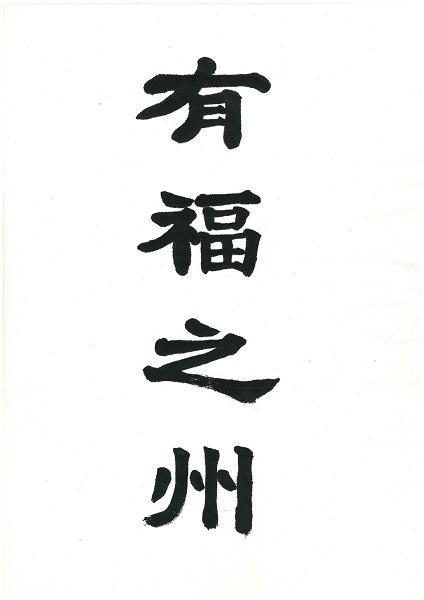 有福之州